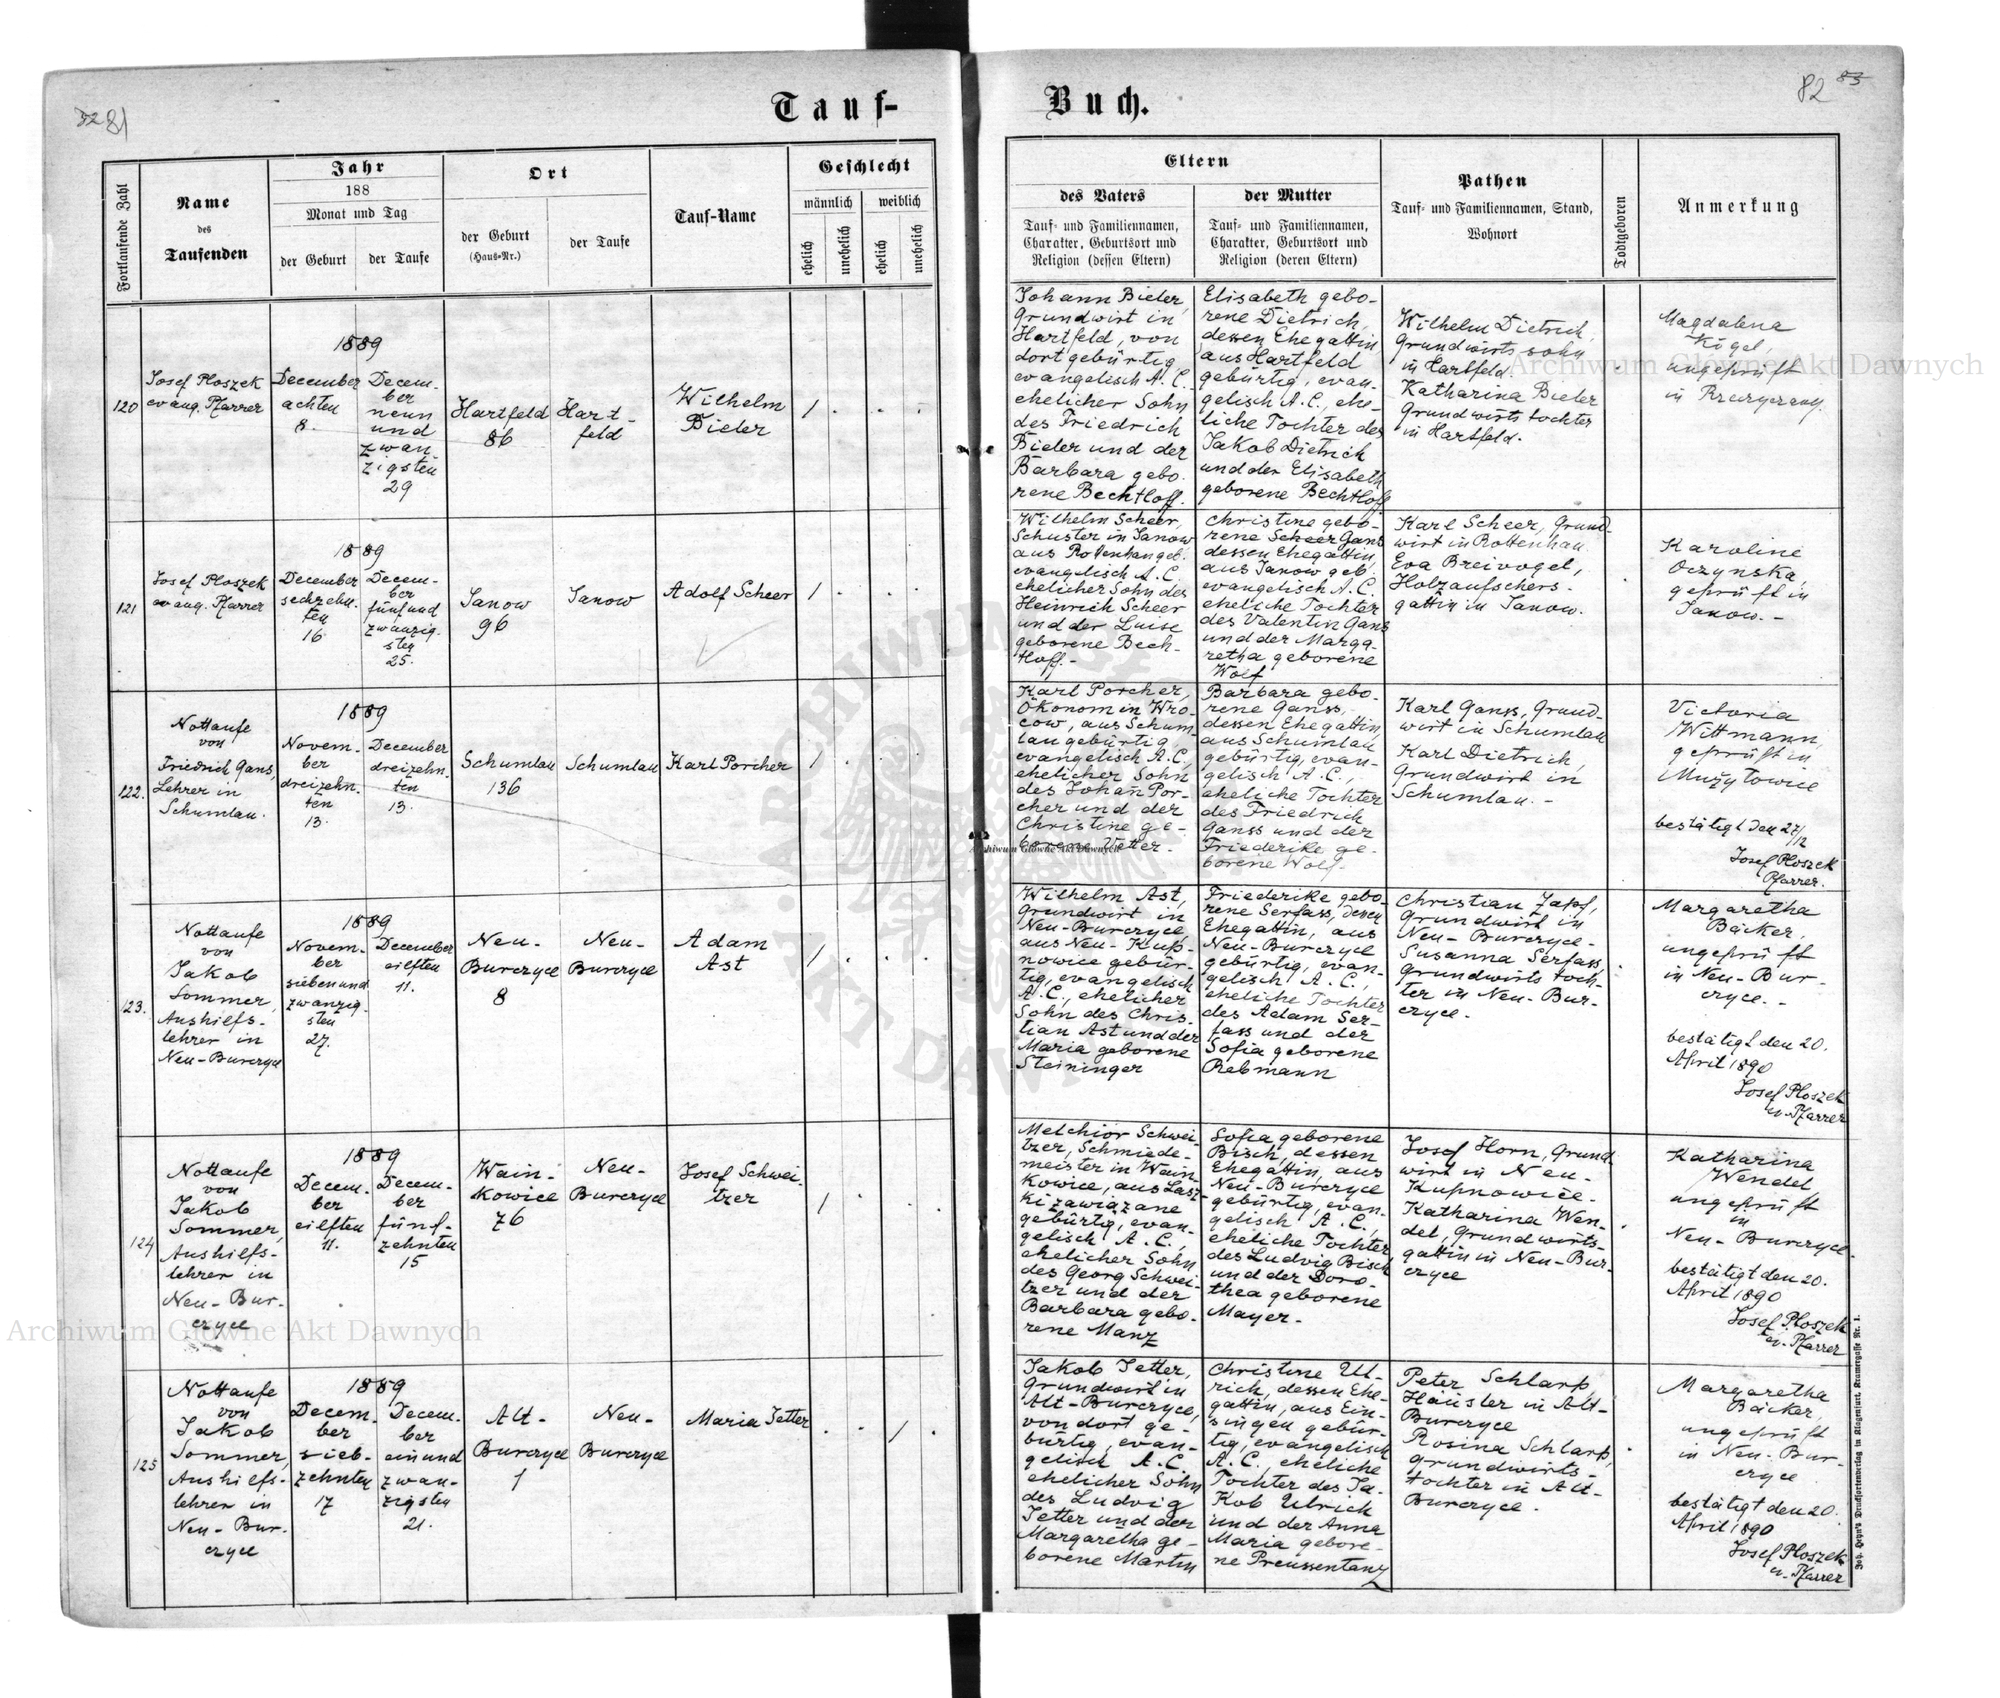 Tauf-
Buch.
81
82
Fortlaufende Zahl
Name
des
Taufenden
Jahr
188
Monat und Tag
der Geburt
der Taufe
Ort
der Geburt
(Haus-Nr.)
der Taufe
Tauf-Name
Geschlecht
männlich
weiblich
ehelich
unehelich
ehelich
unehelich
Eltern
des Vaters
Tauf- und Familiennamen,
Charakter, Geburtsort und
Religion (dessen Eltern)
der Mutter
Tauf- und Familiennamen,
Charakter, Geburtsort und
Religion (deren Eltern)
Pathen
Tauf- und Familiennamen, Stand,
Wohnort
Todtgeboren
Anmerkung
120
Josef Ploszek
evang. Pfarrer
1889
December
achten
8.
Decem-
ber
neun
und
zwan-
zigsten
29
Hartfeld
86
Hart-
feld
Wilhelm
Bieler
1
Johann Bieler,
Grundwirt in
Hartfeld, von
dort gebürtig
evangelisch A. C.
ehelicher Sohn
des Friedrich
Bieler und der
Barbara gebo-
rene Bechtloff.
Elisabeth gebo-
rene Dietrich,
dessen Ehegattin
aus Hartfeld
gebürtig, evan-
gelisch A. C., ehe-
liche Tochter des
Jakob Dietrich
und der Elisabeth
geborene Bechtloff
Wilhelm Dietrich,
Grundwirts sohn
in Hartfeld.
Katharina Bieler
Grundwirts tochter
in Hartfeld.
Magdalena
Kögel,
ungeprüft
in
121
Josef Ploszek
evang. Pfarrer
1889
December
sechzehn-
ten
16
Decem-
ber
fünf und
zwanzig-
sten
25.
Janow
96
Janow
Adolf Scheer
1
Wilhelm Scheer,
Schuster in Janow
aus Rottenhan geb.
evangelisch A. C.
ehelicher Sohn des
Heinrich Scheer
und der Luise
geborene Bech-
tloff.-
Christine gebo-
rene Scheer Gans
dessen Ehegattin,
aus Janow geb.
evangelisch A. C.
eheliche Tochter
des Valentin Gans
und der Marga-
retha geborene
Wolf
Karl Scheer, Grund-
wirt in Rottenhan
Eva Breivogel,
Holzaufsehers-
gattin in Janow.
Karoline
Oczynska,
geprüft in
Janow.-
122.
Nottaufe
von
Friedrich Gans,
Lehrer in
Schumlau.
1889
Novem-
ber
dreizehn-
ten
13.
December
dreizehn-
ten
13.
Schumlau
136
Schumlau
Karl Porcher
1
Karl Porcher,
Ökonom in Wro-
cow, aus Schum-
lau gebürtig
evangelisch A. C.,
ehelicher Sohn
des Johan Por-
cher und der
Christine ge-
borene Vetter.
Barbara gebo-
rene Ganss,
dessen Ehegattin,
aus Schumlau
gebürtig, evan-
gelisch A. C.,
eheliche Tochter
des Friedrich
Ganss und der
Friederike ge-
borene Wolf.
Karl Ganss, Grund-
wirt in Schumlau
Karl Dietrich,
Grundwirt in
Schumlau.-
Victoria
Wittmann,
geprüft in
Mużyłowice
bestätigt den 27/12
Josef Ploszek
Pfarrer.
123.
Nottaufe
von
Jakob
Sommer,
Aushilfs-
lehrer in
Neu-Burczyce
1889
Novem-
ber
sieben und
zwanzig-
sten
27.
December
eilften
11.
Neu-
Burczyce
8
Neu-
Burczyce
Adam
Ast
1
Wilhelm Ast,
Grundwirt in
Neu-Burczyce,
aus Neu-Kup-
nowice gebür-
tig, evangelisch
A. C., ehelicher
Sohn des Chris-
tian Ast und der
Maria geborene
Steininger
Friederike gebo-
rene Serfass, dessen
Ehegattin, aus
Neu-Burczyce
gebürtig, evan-
gelisch A. C.,
eheliche Tochter
des Adam Ser-
fass und der
Sofia geborene
Rebmann
Christian Zapf,
Grundwirt in
Neu-Burczyce-
Susanna Serfass,
Grundwirts toch-
ter in Neu-Bur-
czyce.
Margaretha
Bäcker,
ungeprüft
in Neu-Bur-
czyce.-
bestätigt den 20.
April 1890
Josef Ploszek
ev. Pfarrer
124
Nottaufe
von
Jakob
Sommer,
Aushilfs-
lehrer in
Neu-Bur-
czyce
1889
Decem-
ber
eilften
11.
Decem-
ber
fünf-
zehnten
15
Wain-
kowice
76
Neu-
Burczyce
Josef Schwei-
tzer
1
Melchior Schwei-
tzer, Schmiede-
meister in Wain-
kowice, aus Lasz-
ki zawiązane
gebürtig, evan-
gelisch A. C.,
ehelicher Sohn
des Georg Schwei-
tzer und der
Barbara gebo-
rene Manz
Sofia geborene
Bisch, dessen
Ehegattin, aus
Neu-Burczyce
gebürtig, evan-
gelisch A. C.,
eheliche Tochter
des Ludvig Bisch
und der Doro-
thea geborene
Mayer.
Josef Horn, Grund-
wirt in Neu-
Kupnowice.
Katharina Wen-
del, Grundwirts-
gattin in Neu-Bur-
czyce
Katharina
Wendel
ungeprüft
in
Neu-Burczyce.
bestätigt den 20.
April 1890
Josef Ploszek
ev. Pfarrer
125
Nottaufe
von
Jakob
Sommer,
Aushilfs-
lehrer in
Neu-Bur-
czyce
1889
Decem-
ber
sieb-
zehnten
17
Decem-
ber
ein und
zwan-
zigsten
21.
Alt-
Burczyce
1
Neu-
Burczyce
Maria Jetter
1
Jakob Jetter,
Grundwirt in
Alt-Burczyce,
von dort ge-
bürtig, evan-
gelisch A. C.
ehelicher Sohn
des Ludvig
Jetter und der
Margaretha ge-
borene Martin
Christine Ul-
rich, dessen Ehe-
gattin, aus Ein-
singen gebür-
tig, evangelisch
A. C., eheliche
Tochter des Ja-
kob Ulrich
und der Anna
Maria gebore-
ne Preussentanz
Peter Schlarp,
Häusler in Alt-
Burczyce
Rosina Schlarp,
Grundwirts-
tochter in Alt-
Burczyce.
Margaretha
Bäcker,
ungeprüft
in Neu-Bur-
czyce
bestätigt den 20.
April 1890
Josef Ploszek
ev. Pfarrer
Joh. Heyn's Drucksortenverlag in Klagenfurt, Kramergasse Nr. 1.
Archiwum Główne Akt Dawnych
Archiwum Główne Akt Dawnych
Archiwum Główne Akt Dawnych
ARCHIWUM
AKT DAWNYCH